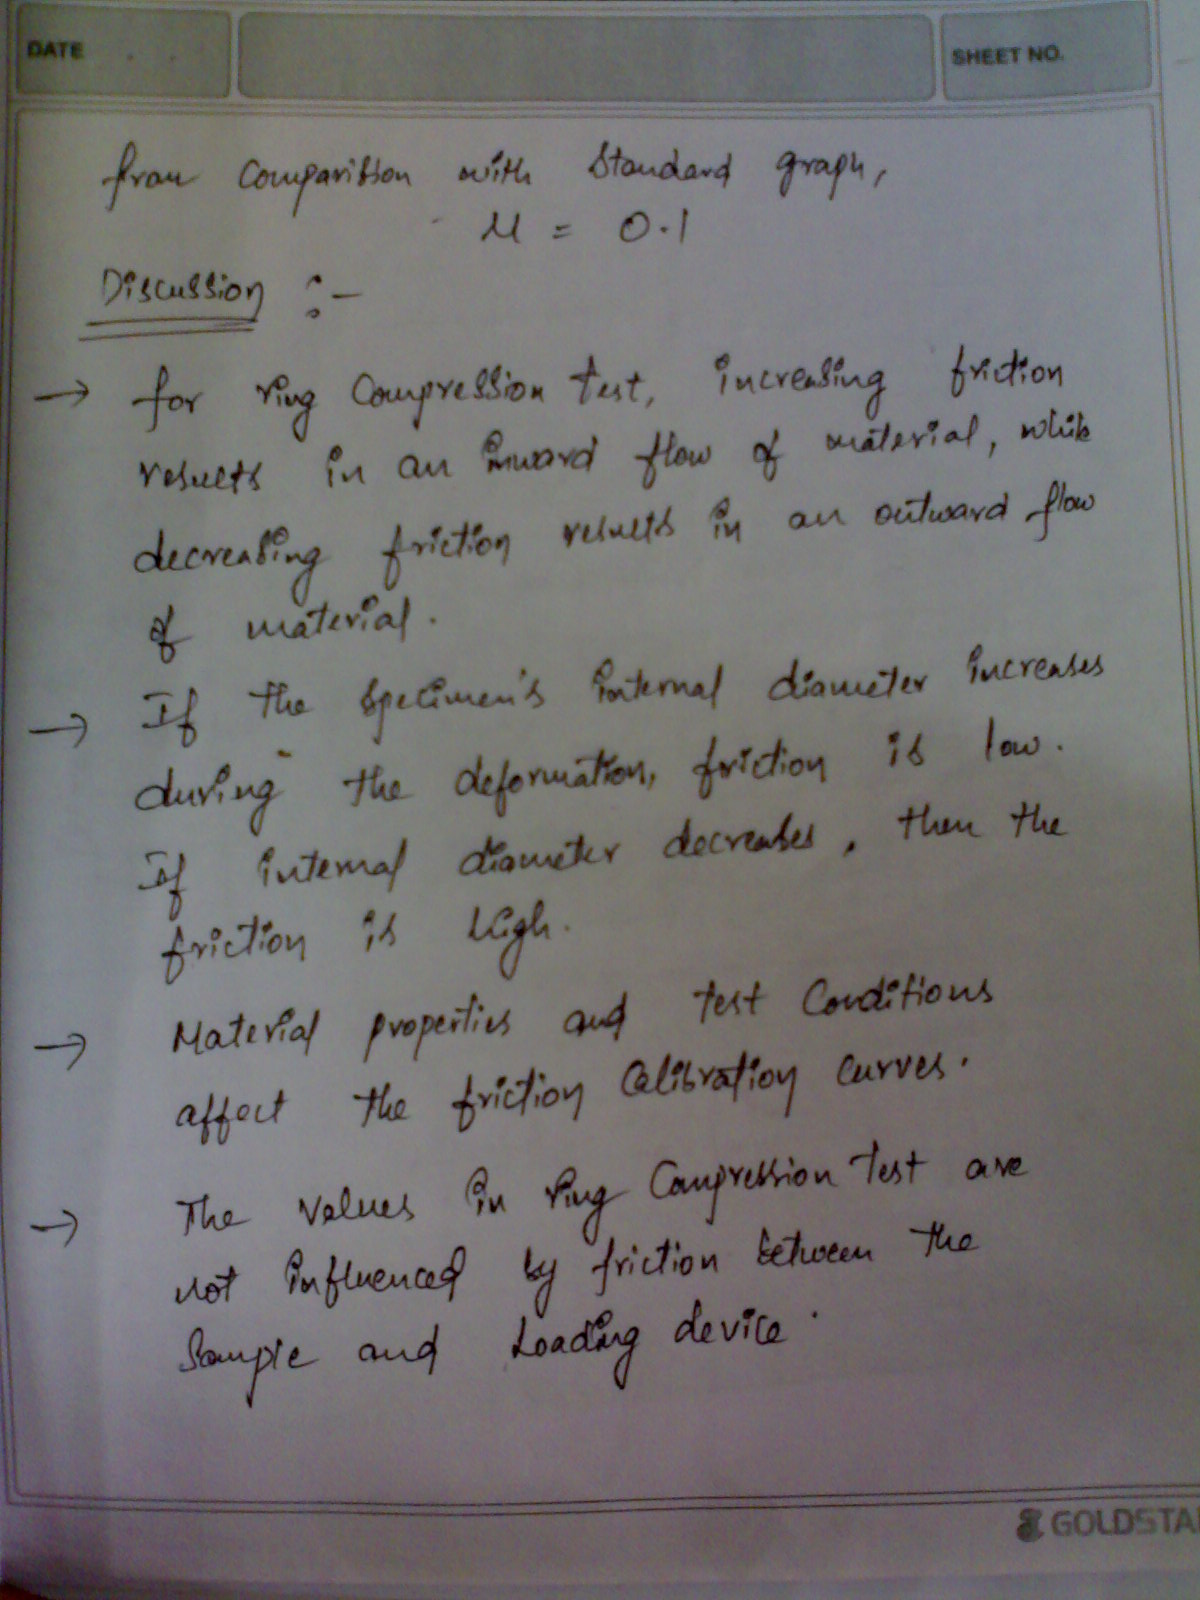 DATE
SHEET NO.
from Comparisson with Standard graph,
μ = 0.1
Discussion :-
→ for ring Compression Test, increasing friction
results in an inward flow of material, while
decreasing friction results in an outward flow
of material.
→ If the specimen's internal diameter increases
during the deformation, friction is low.
If internal diameter decreases, then the
friction is high.
→ Material properties and test Conditions
affect the friction Calibration curves.
→ The values in ring Compression Test are
not influenced by friction between the
Sample and Loading device.
GOLDSTA